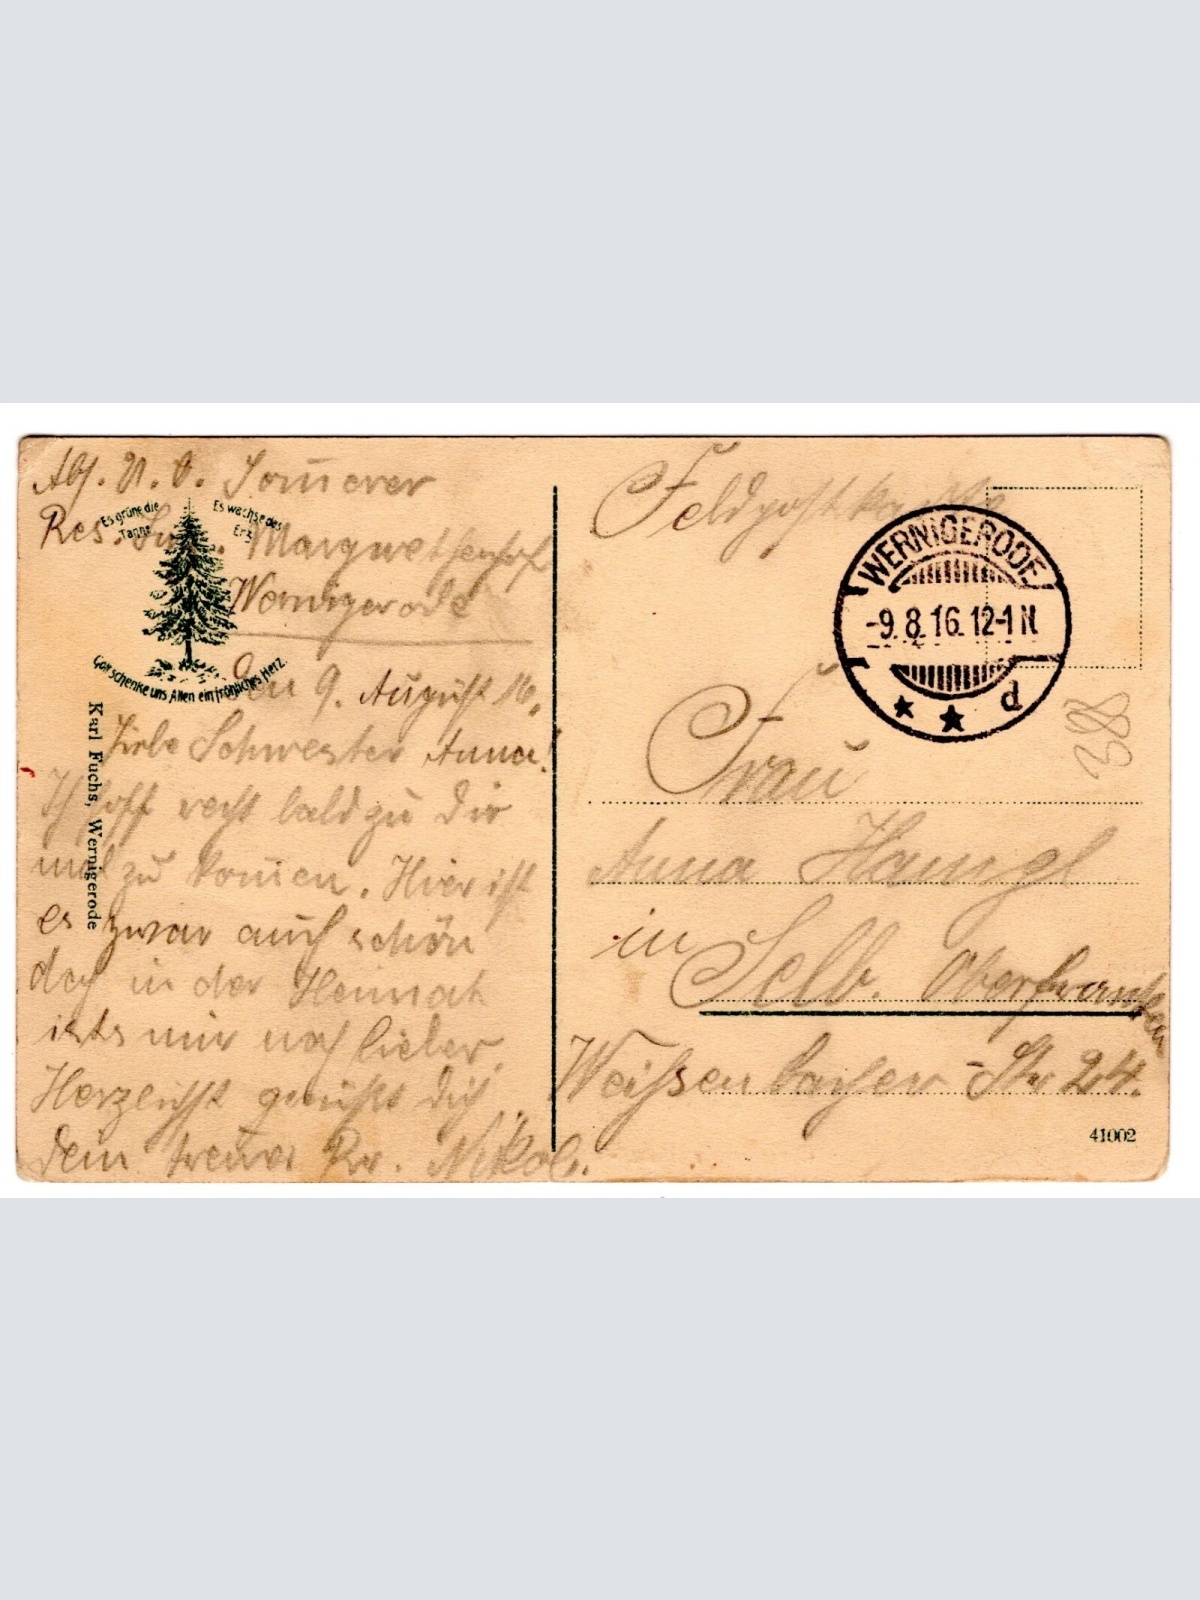 Abs. U. O. Somerer
Res. Margarethenhof
Wernigerode
Es grüne die
Tanne
Es wachse das
Erz
Gott schenke uns Allen ein fröhliches Herz.
Karl Fuchs, Wernigerode
Den 9. August 16.
Liebe Schwester Anna!
Ich hoff recht bald zu Dir
mal zu komen. Hier ist
es zwar auch schön
doch in der Heimat
ists mir noch lieber.
Herzlichst grüßt dich
dein treuer Br. Nikol.
Feldpostkarte
WERNIGERODE
-9.8.16.12-1N
d
38
Frau
Anna
in Selb. Oberfranken
Weißenbacher-Str 24.
41002